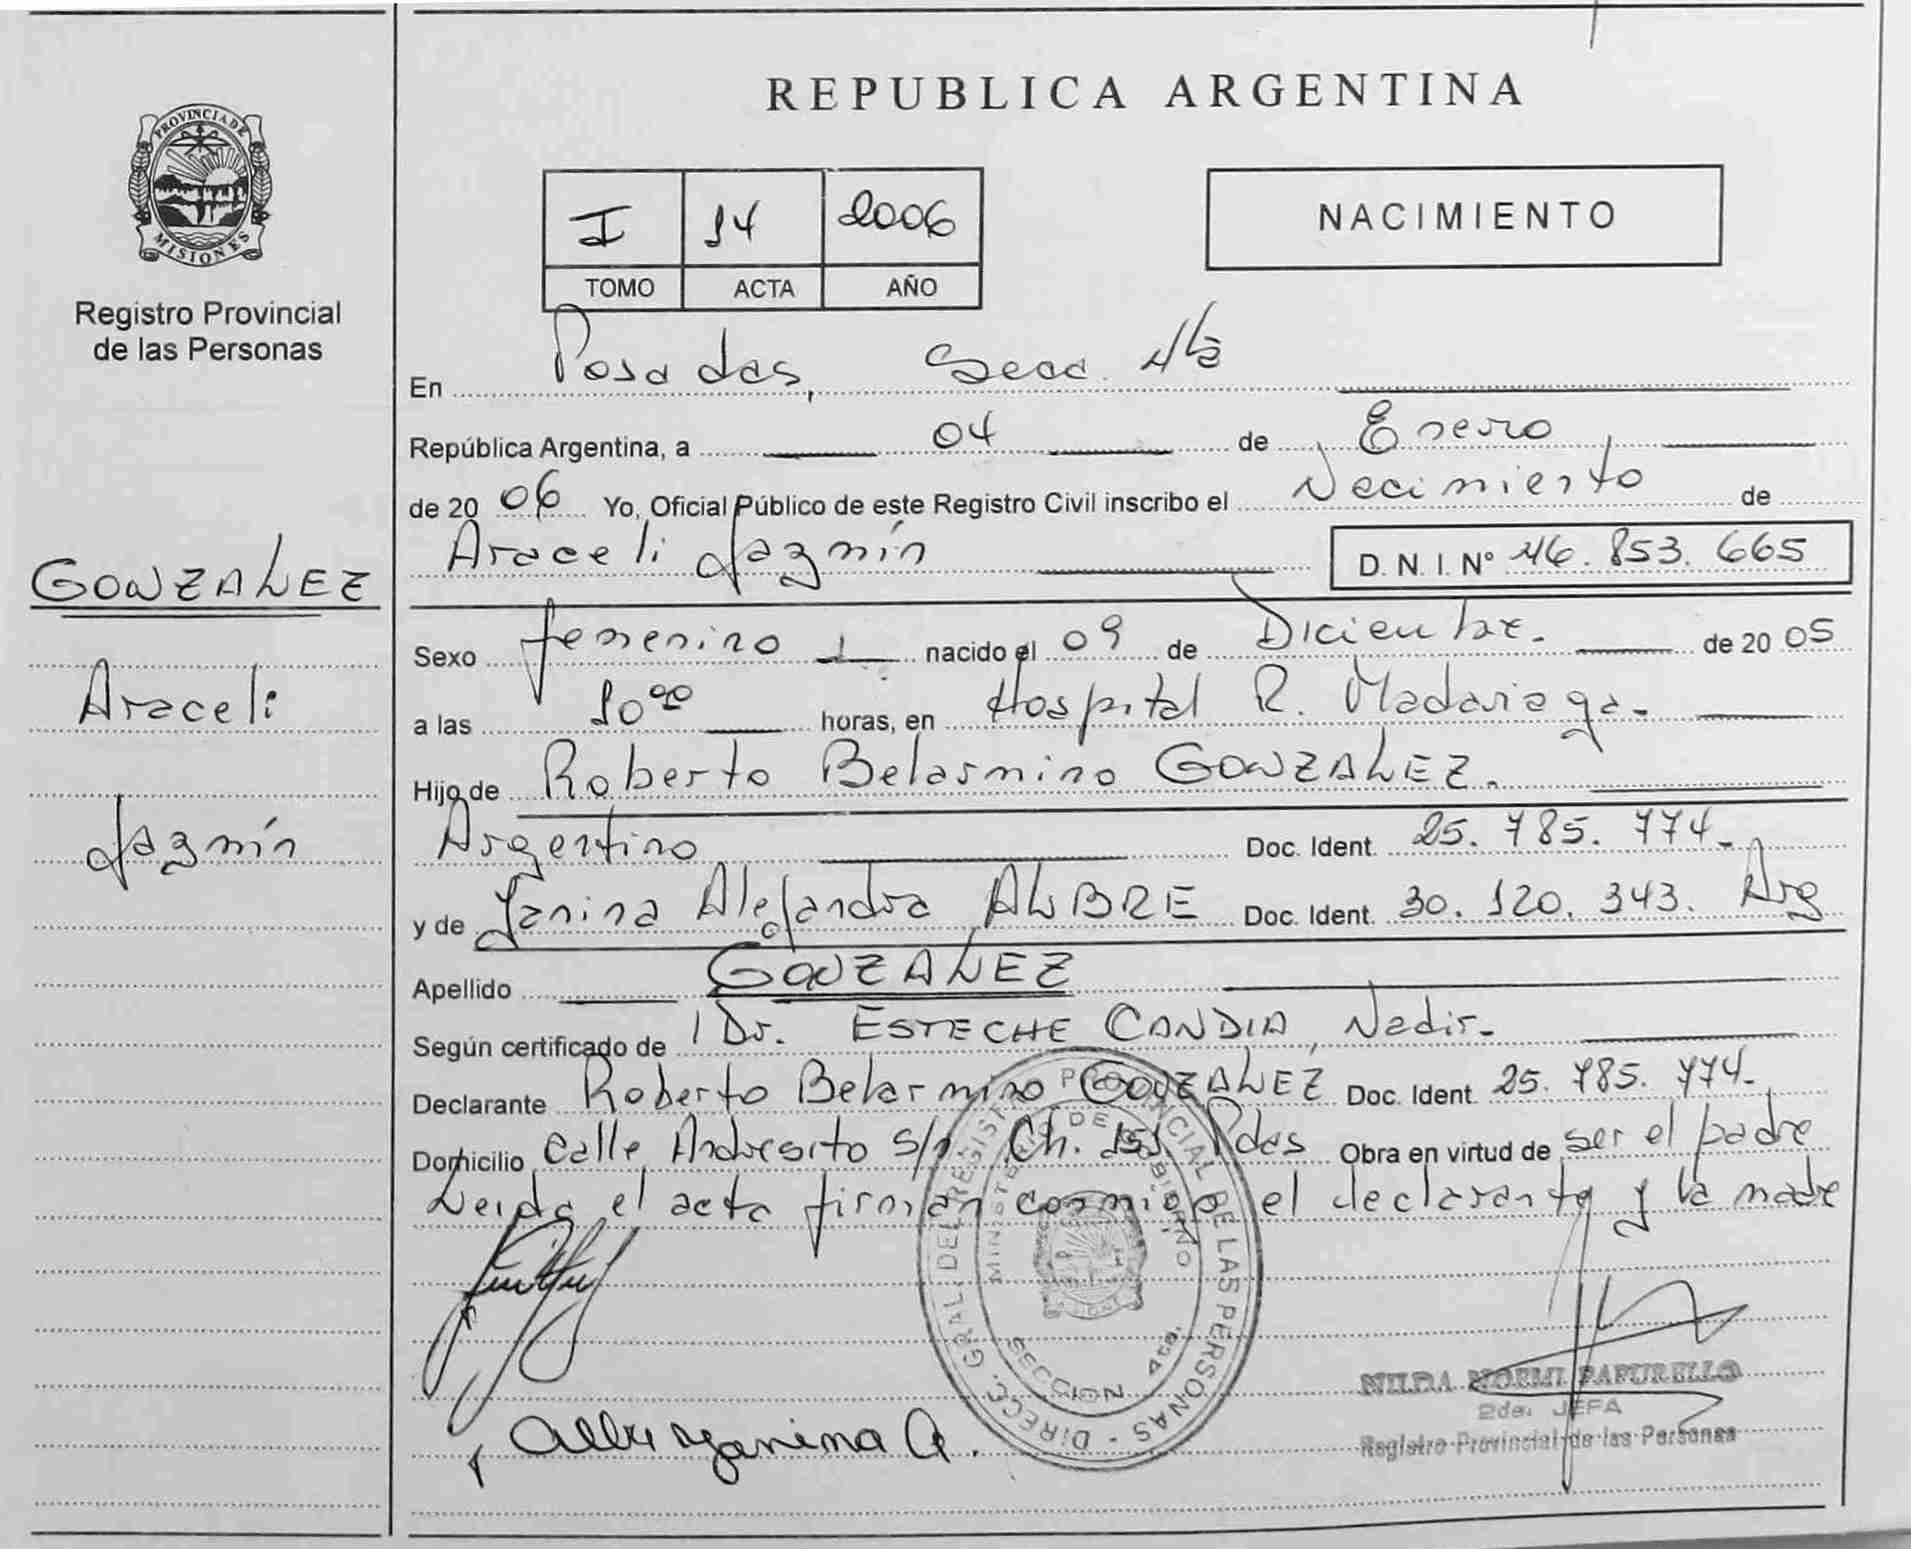 PROVINCIA DE
MISIONES
Registro Provincial
de las Personas
GONZALEZ
Araceli
Jazmín
REPUBLICA ARGENTINA
I 14 2006
TOMO ACTA AÑO
NACIMIENTO
En Posadas, Secc. 4ta
República Argentina, a 04 de Enero,
de 20 06 Yo, Oficial Público de este Registro Civil inscribo el Nacimiento de
Araceli Jazmín D. N. I. Nº 46.853.665
Sexo femenino nacido el 09 de Diciembre. de 20 05
a las 10⁰⁰ horas, en Hospital R. Madariaga.
Hijo de Roberto Belarmino GONZALEZ.
Argentino Doc. Ident. 25.785.774.
y de Yanina Alejandra ALBRE Doc. Ident. 30.120.343. Arg
Apellido GONZALEZ
Según certificado de Dr. ESTECHE CANDIA, Nadir.
Declarante Roberto Belarmino GONZALEZ Doc. Ident. 25.785.774.
Domicilio Calle Andresito s/n. Ch. 151. Pdas Obra en virtud de ser el padre
Leida el acta firman conmigo el declarante y la madre
DIRECC. GRAL. DEL REGISTRO PROVINCIAL DE LAS PERSONAS -
MINISTERIO DE GOBIERNO
SECCION 4ta.
NILDA NOEMI PAPURELLO
2da. JEFA
Registro Provincial de las Personas
Yanina A.